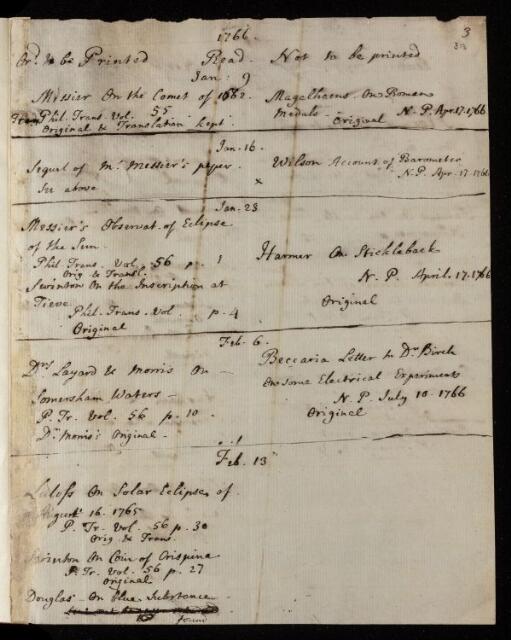 1766.
3
Ord. to be Printed Read. Not to be printed
Jan: 9
Messier On the Comet of 1662. Magalhaens On Roman
Phil. Trans. Vol. 55. Medals - N. P. Apr. 17. 1766
Original & Translation kept. Original
Jan. 16.
Sequel of Mr. Messier's paper. Wilson Account of Barometer
see above x N. P. Apr. 17. 1766
Jan. 23
Messier's Observat. of Eclipse
of the Sun. Harmer On Stickleback
Phil Trans. Vol. 56 p. 1 N. P. April. 17. 1766
Orig. & Transl. Original
Swinton On the Inscription at
Tieve
Phil. Trans. Vol. p. 4
Original
Feb. 6.
Drs. Layard & Morris On - Beccaria Letter to Dr. Birch
Somersham Waters - On some Electrical Experiments
P. Tr. Vol. 56 p. 10. N. P. July 10. 1766
Dr. Morris's Original - Original
Feb. 13
Lulofs On Solar Eclipse of
August 16. 1765
P. Tr. Vol. 56 p. 30
Orig & Trans.
Swinton On Coin of Crispina
P. Tr. Vol. 56 p. 27
Original
Douglas On blue Substance
found